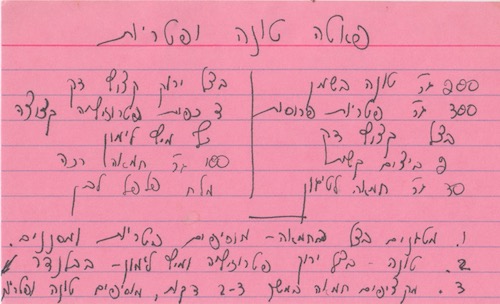 פאטה טונה ופטריות
200 גר' טונה בשמן
300 גר' פטריות פרוסות
בצל קצוץ דק
2 ביצים קשות
30 גר' חמאה לטיגון
בצל ירוק קצוץ דק
3 כפות פטרוזיליה קצוצה
כף מיץ לימון
100 גר' חמאה רכה
מלח פלפל לבן
1. מטגנים בצל בחמאה - מוסיפים פטריות ומסננים.
2. טונה - בצל ירוק פטרוזיליה ומיץ לימון - בבלנדר
3. מקציפים חמאה במשך 2-3 דקות, מוסיפים טונה ופטריות